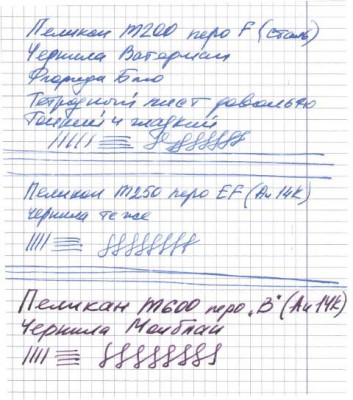 Пеликан M200 перо F (сталь)
Чернила Ватерман
Флорида Блю
Тетрадный лист довольно
Тонкий и гладкий
Пеликан M250 перо EF (Au 14K)
чернила те же
Пеликан M600 перо „B" (Au 14K)
Чернила Монблан